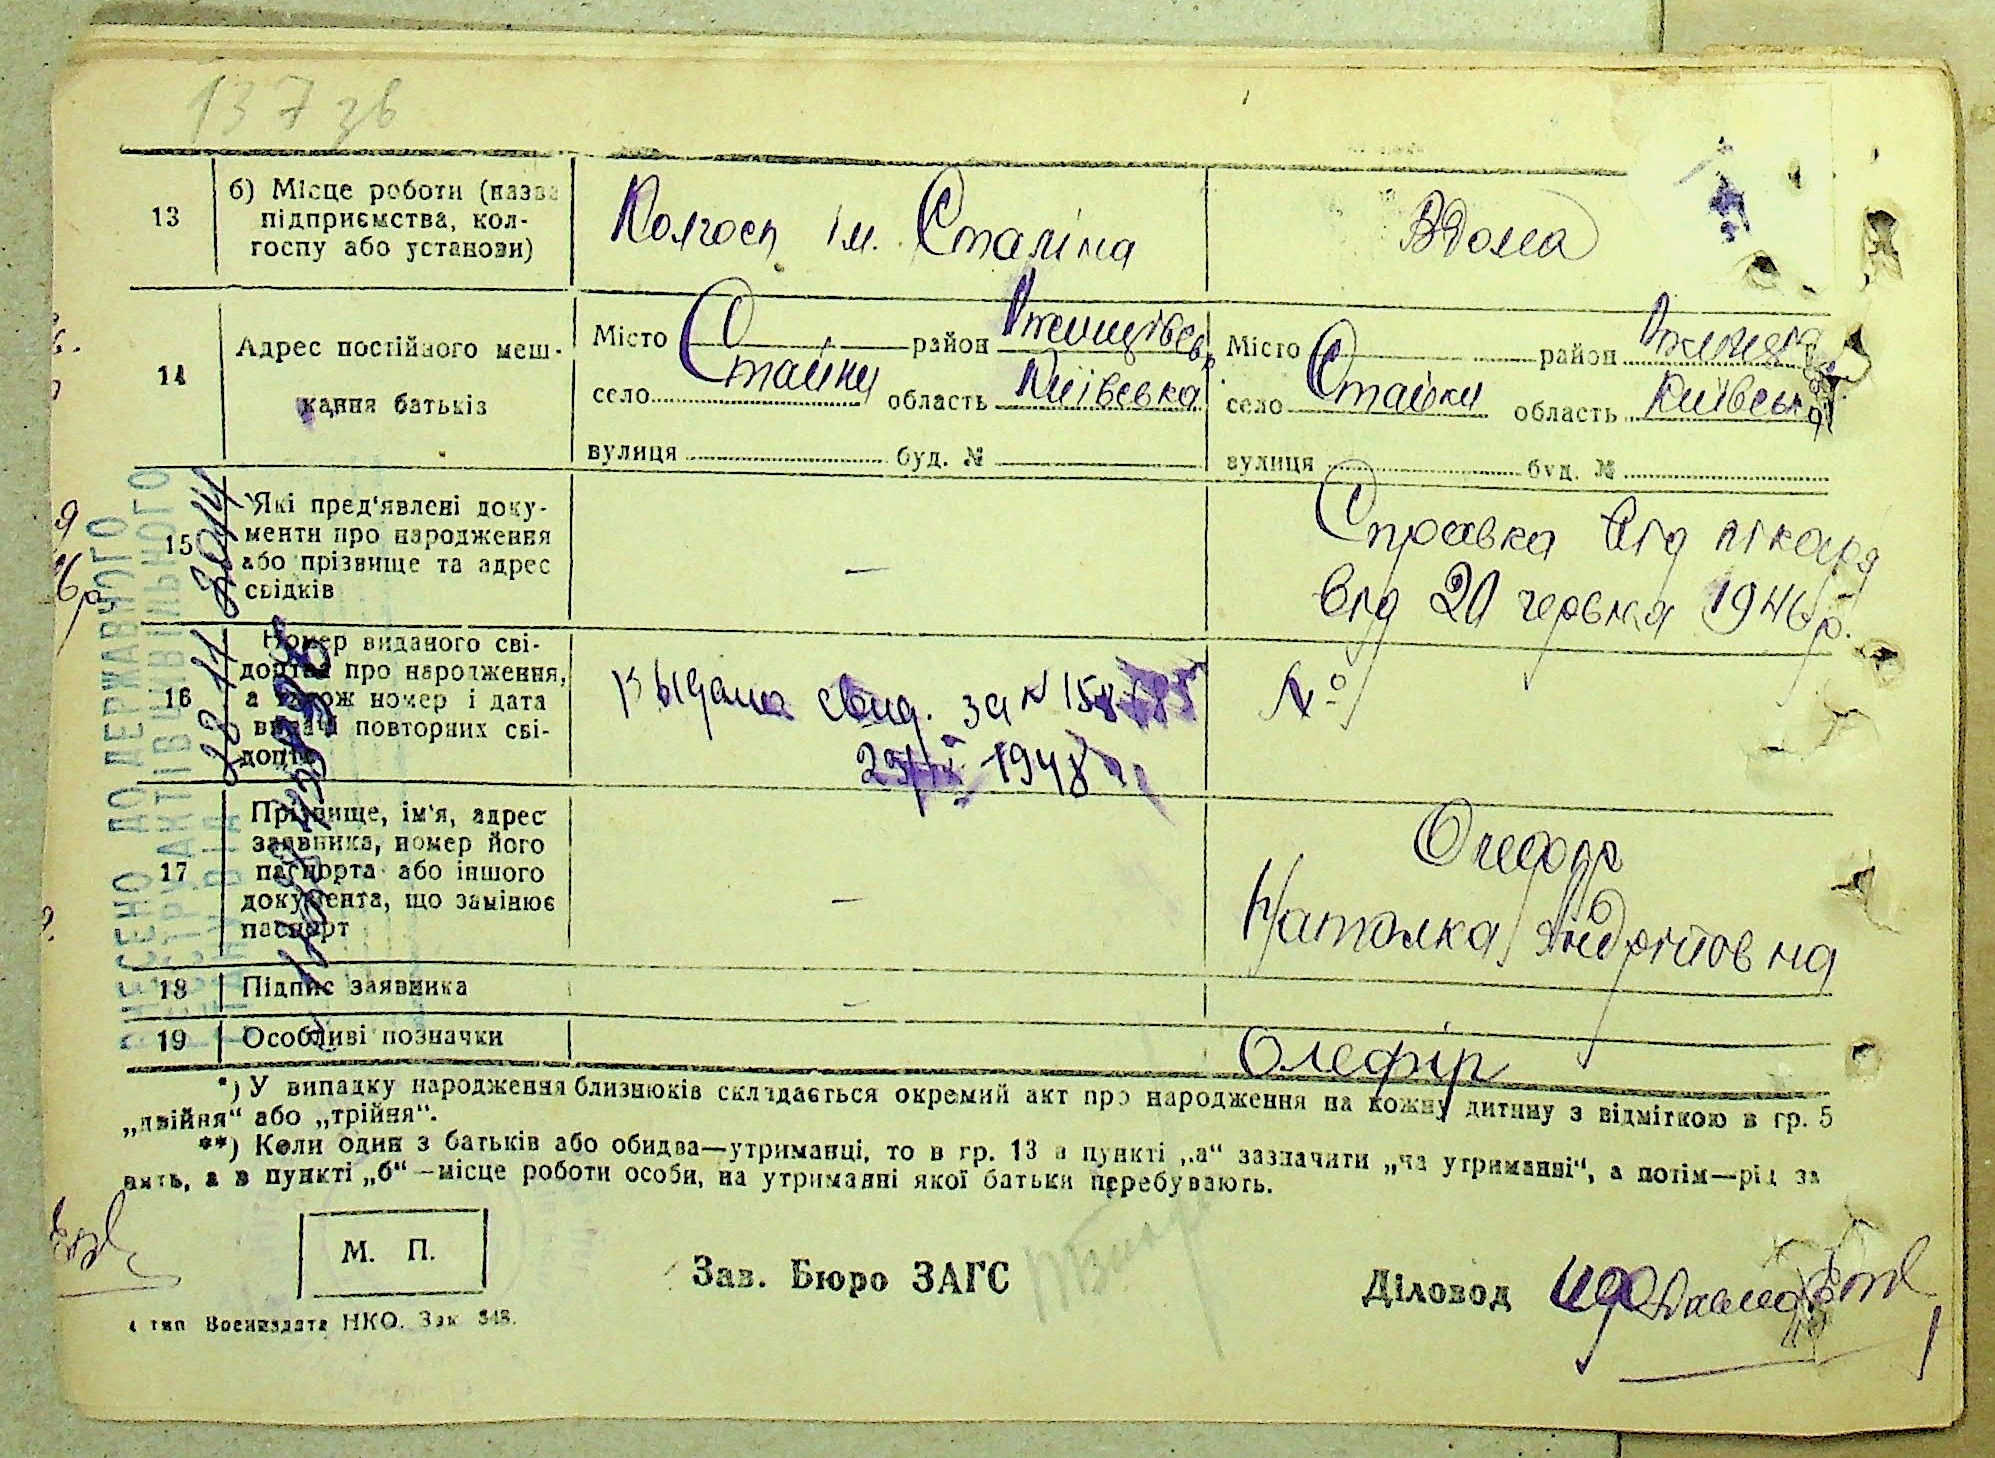 137 зв
13
б) Місце роботи (назва підприємства, кол-
госпу або установи)
Колгосп ім. Сталіна
Вдома
14
Адрес постійного меш-
кання батьків
Місто район
село Стайки область Київська
вулиця буд. №
Місто район
село Стайки область Київська
вулиця буд. №
15
Які пред'явлені доку-
менти про народження
або прізвище та адрес
свідків
—
Справка від лікаря
від 20 червня 1946 р.
16
Номер виданого сві-
доцтва про народження,
а також номер і дата
видачі повторних сві-
доцтв
Выдано свид. за №
1948
№
17
Прізвище, ім'я, адрес
заявника, номер його
паспорта або іншого
документа, що замінює
паспорт
—
Олефір
Наталка Андріївна
18
Підпис заявника
19
Особливі позначки
Олефір
ВНЕСЕНО ДО ДЕРЖАВНОГО
РЕЄСТРУ АКТІВ ЦИВІЛЬНОГО
СТАНУ ВІД
*) У випадку народження близнюків складається окремий акт про народження на кожну дитину з відміткою в гр. 5
„двійня“ або „трійня“.
**) Коли один з батьків або обидва—утриманці, то в гр. 13 в пункті „а“ зазначити „на утриманні“, а потім—рід за
нять, а в пункті „б“—місце роботи особи, на утриманні якої батьки перебувають.
М. П.
Зав. Бюро ЗАГС
Діловод
4 тип Воениздата НКО. Зак 348.